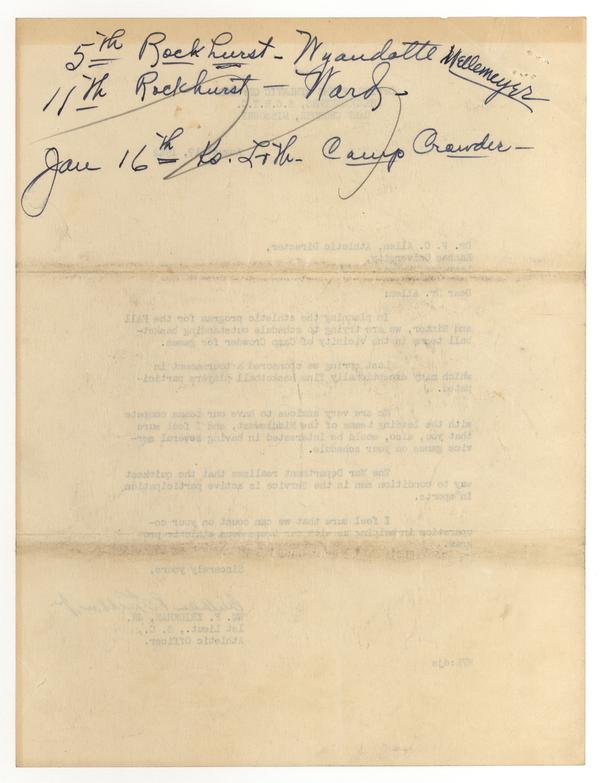 5th Rockhurst - Wyandotte Mellemeyer
11th Rockhurst - Ward -
Jan 16th Ks. L+th - Camp Crowder -
CAMP CROWDER, MISSOURI
Dr. F. C. Allen, Athletic Director,
Kansas University,
Dear Dr. Allen:
In planning the athletic program for the Fall
and Winter, we are trying to schedule outstanding basket-
ball teams in the vicinity of Camp Crowder for games.
Last spring we sponsored a tournament in
which many exceptionally fine basketball players partici-
pated.
We are very anxious to have our teams compete
with the leading teams of the Middlewest, and I feel sure
that you, also, would be interested in having several ser-
vice games on your schedule.
The War Department realizes that the quickest
way to condition men in the Service is active participation
in sports.
I feel sure that we can count on your co-
operation in helping us with our
Sincerely yours,
1st Lieut., S. C.,
Athletic Officer.